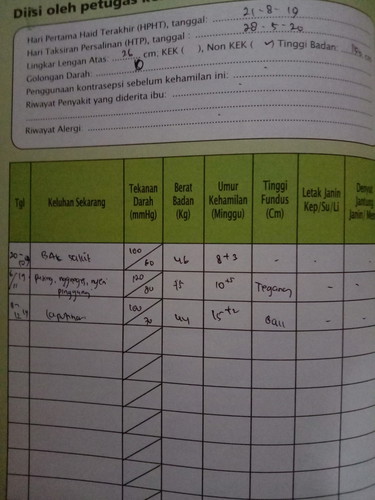 Diisi oleh petugas
Hari Pertama Haid Terakhir (HPHT), tanggal: 21-8-19
Hari Taksiran Persalinan (HTP), tanggal: 28-5-20
Lingkar Lengan Atas: 26 cm; KEK ( ), Non KEK ( ✓) Tinggi Badan:
Golongan Darah:
Penggunaan kontrasepsi sebelum kehamilan ini: -
Riwayat Penyakit yang diderita ibu: -
Riwayat Alergi: -
Tgl Keluhan Sekarang Tekanan Darah (mmHg) Berat Badan (Kg) Umur Kehamilan (Minggu) Tinggi Fundus (Cm) Letak Janin Kep/Su/Li Denyut Jantung Janin/
BAK sakit 100/60 46 8+3 - - -
120/80 10+5 - -
100/70 44 15+2 Ball - -